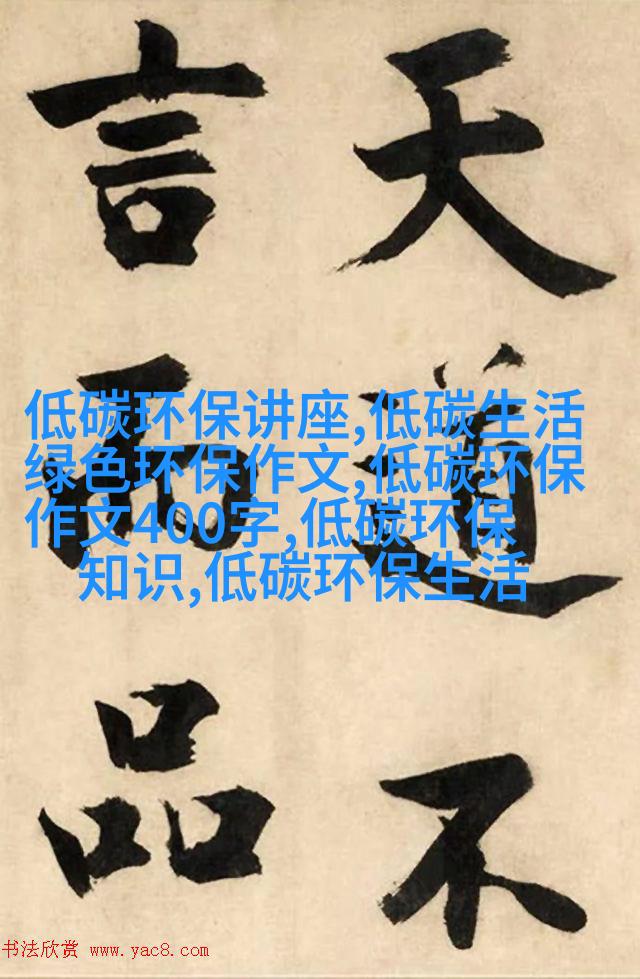 天道不
言而品
低碳环保讲座,低碳生活
绿色环保作文,低碳环保
作文400字,低碳环保
知识,低碳环保生活
书法欣赏 www.yac8.com